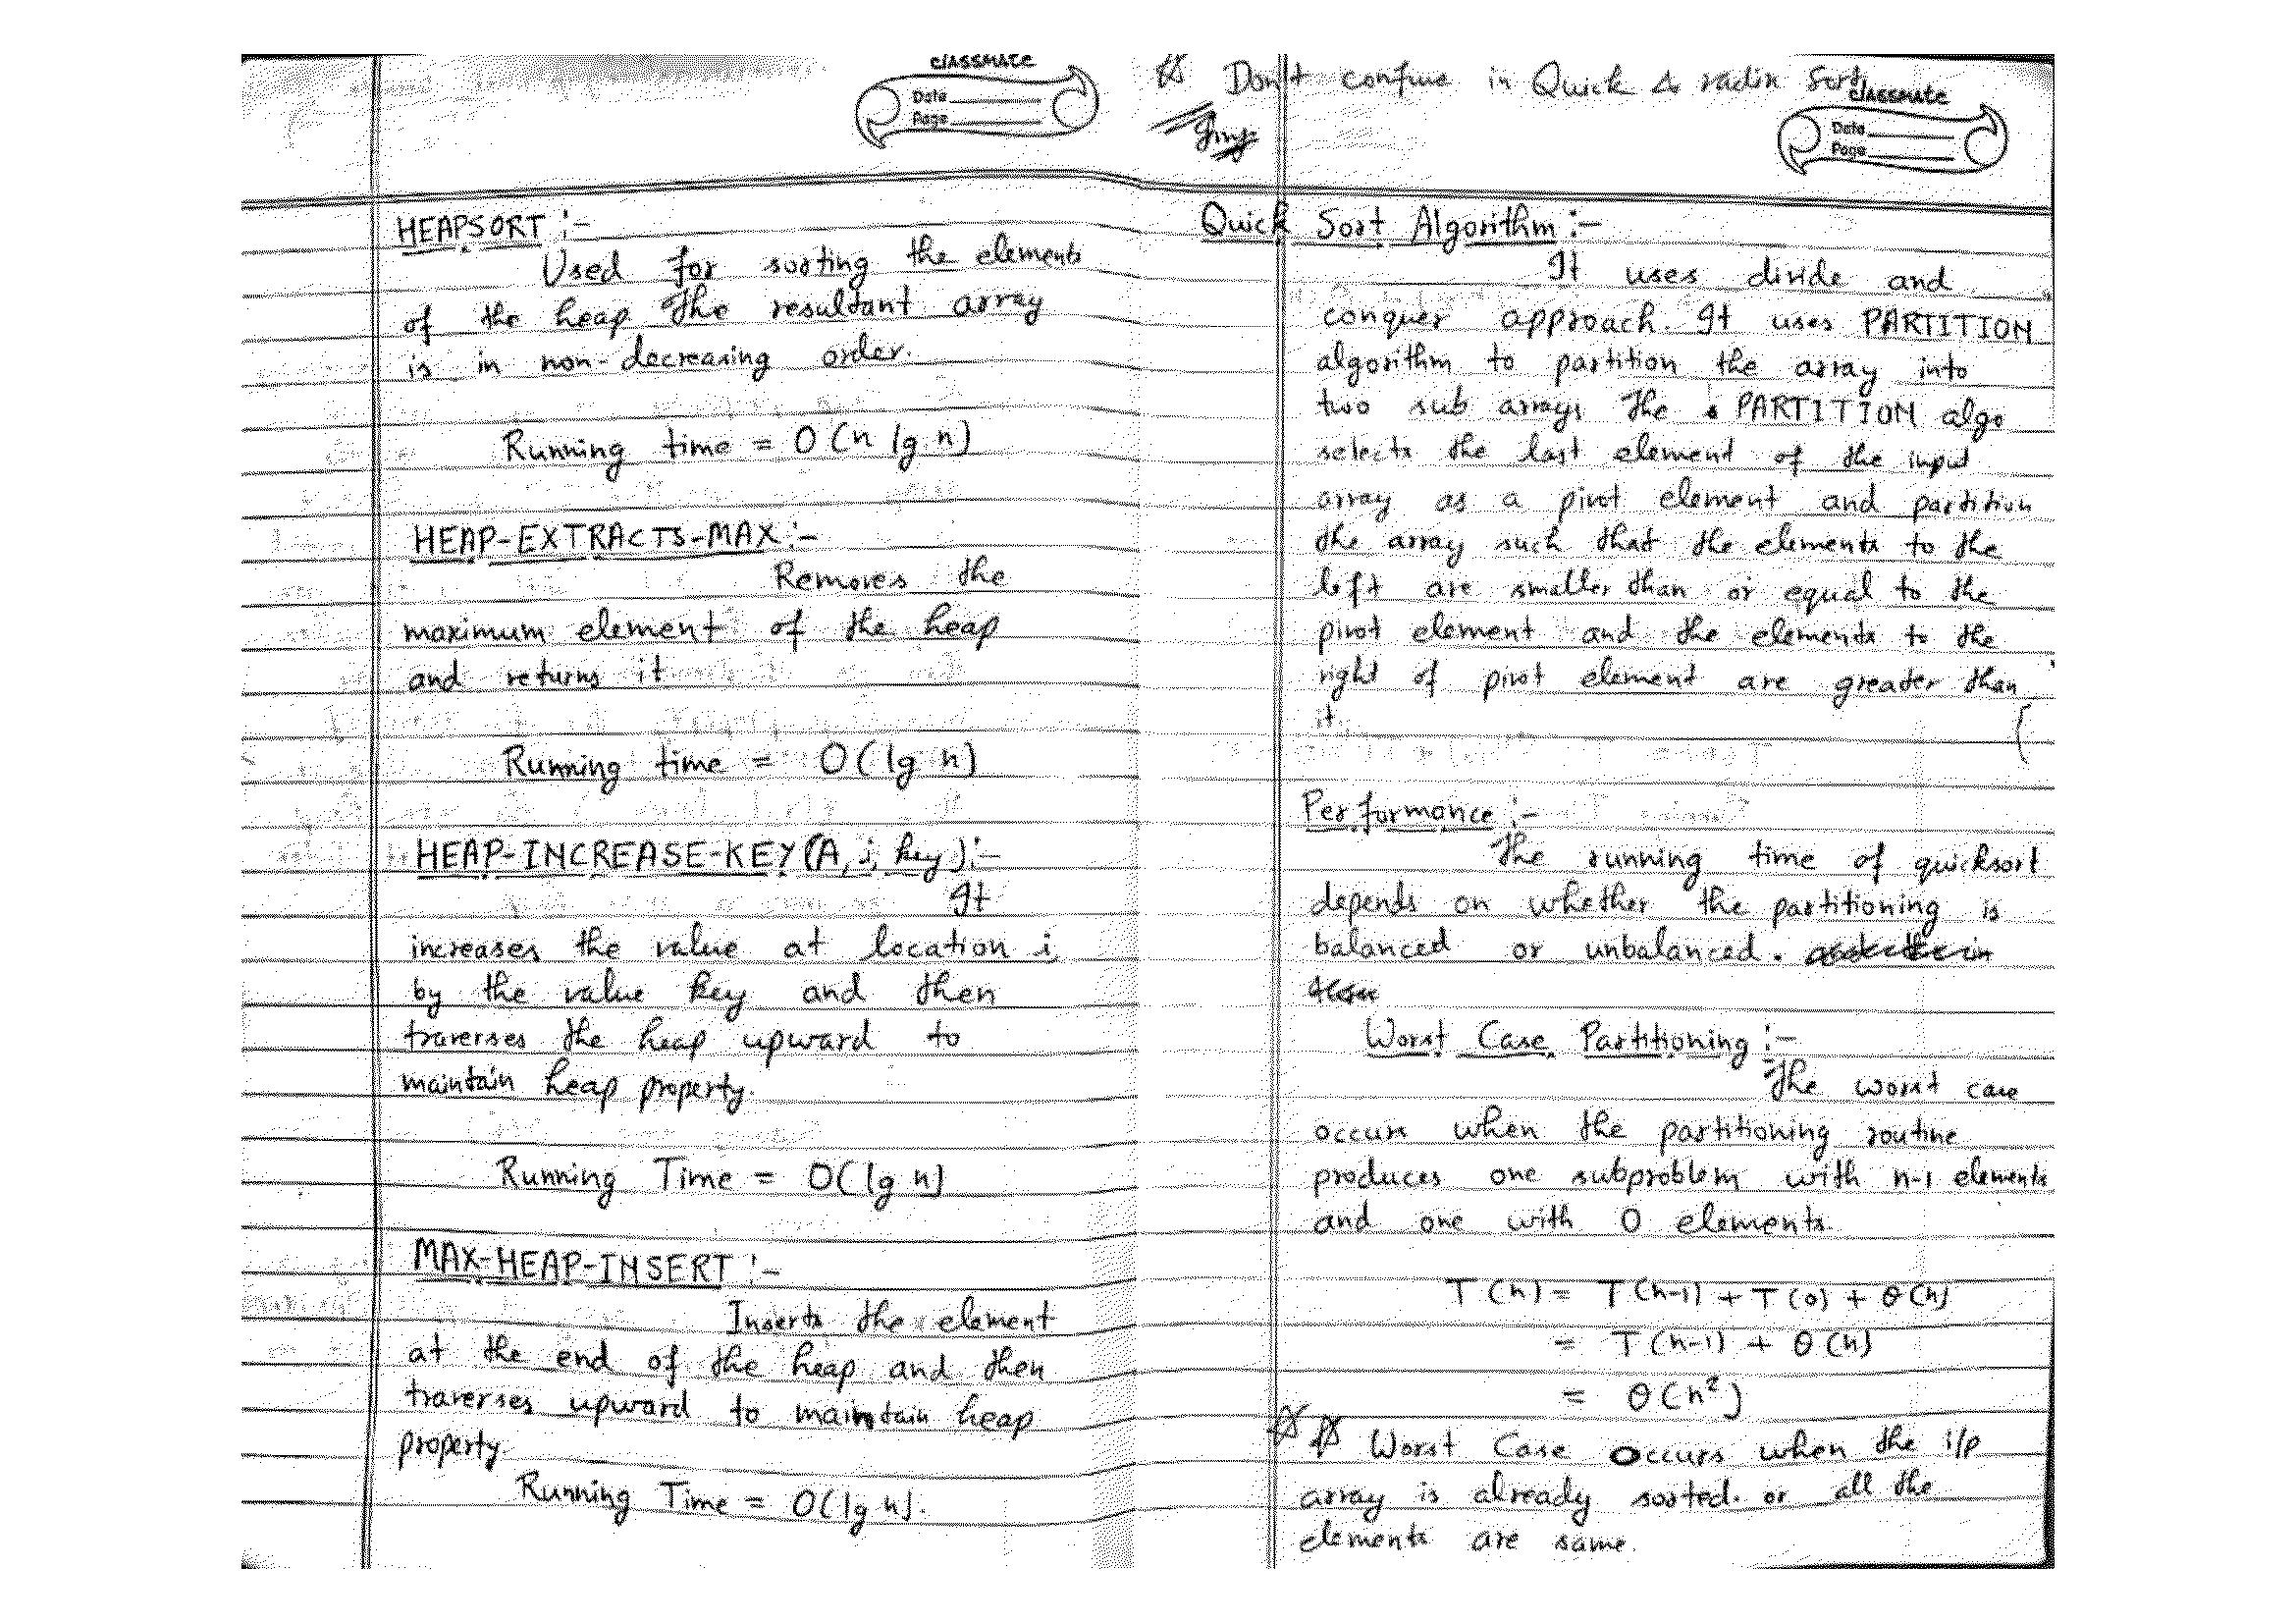 classmate
Date
Page
HEAPSORT :-
Used for sorting the elements
of the heap The resultant array
is in non-decreasing order.
Running time = O(n lg n)
HEAP-EXTRACTS-MAX :-
Removes the
maximum element of the heap
and returns it
Running time = O(lg n)
HEAP-INCREASE-KEY(A, i, key) :-
It
increases the value at location i
by the value key and then
traverses the heap upward to
maintain heap property.
Running Time = O(lg n)
MAX-HEAP-INSERT :-
Inserts the element
at the end of the heap and then
traverses upward to maintain heap
property.
Running Time = O(lg n).
Don't confuse in Quick & radix Sort.
classmate
Date
Page
Quick Sort Algorithm :-
It uses divide and
conquer approach. It uses PARTITION
algorithm to partition the array into
two sub arrays The PARTITION algo
selects the last element of the input
array as a pivot element and partition
the array such that the elements to the
left are smaller than or equal to the
pivot element and the elements to the
right of pivot element are greater than
it.
Performance :-
The running time of quicksort
depends on whether the partitioning is
balanced or unbalanced.
Worst Case Partitioning :-
The worst case
occurs when the partitioning routine
produces one subproblem with n-1 elements
and one with 0 elements.
T(n) = T(n-1) + T(0) + θ(n)
= T(n-1) + θ(n)
= θ(n²)
Worst Case Occurs when the i/p
array is already sorted. or all the
elements are same.